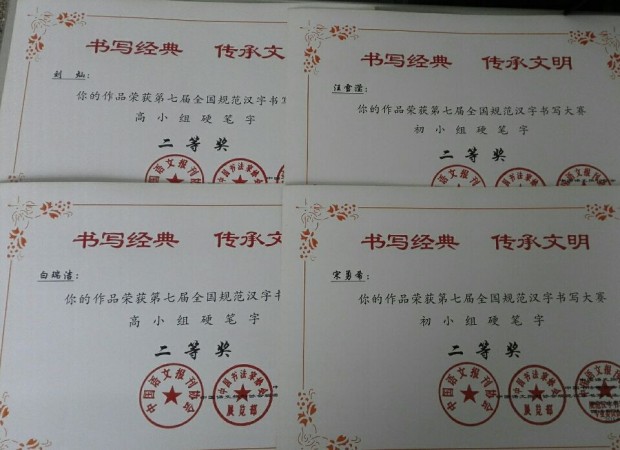 书写经典 传承文
刘灿：
你的作品荣获第七届全国规范汉字书
高小组硬笔字
二等奖
书写经典 传承文明
汪雪滢：
你的作品荣获第七届全国规范汉字书写大赛
初小组硬笔字
二等奖
书写经典 传承文
白瑞洁：
你的作品荣获第七届全国规范汉字书
高小组硬笔字
二等奖
中国语文报刊协会
展览部
书写经典 传承文明
宋勇希：
你的作品荣获第七届全国规范汉字书写大赛
初小组硬笔字
二等奖
中国语文报刊协会
展览部